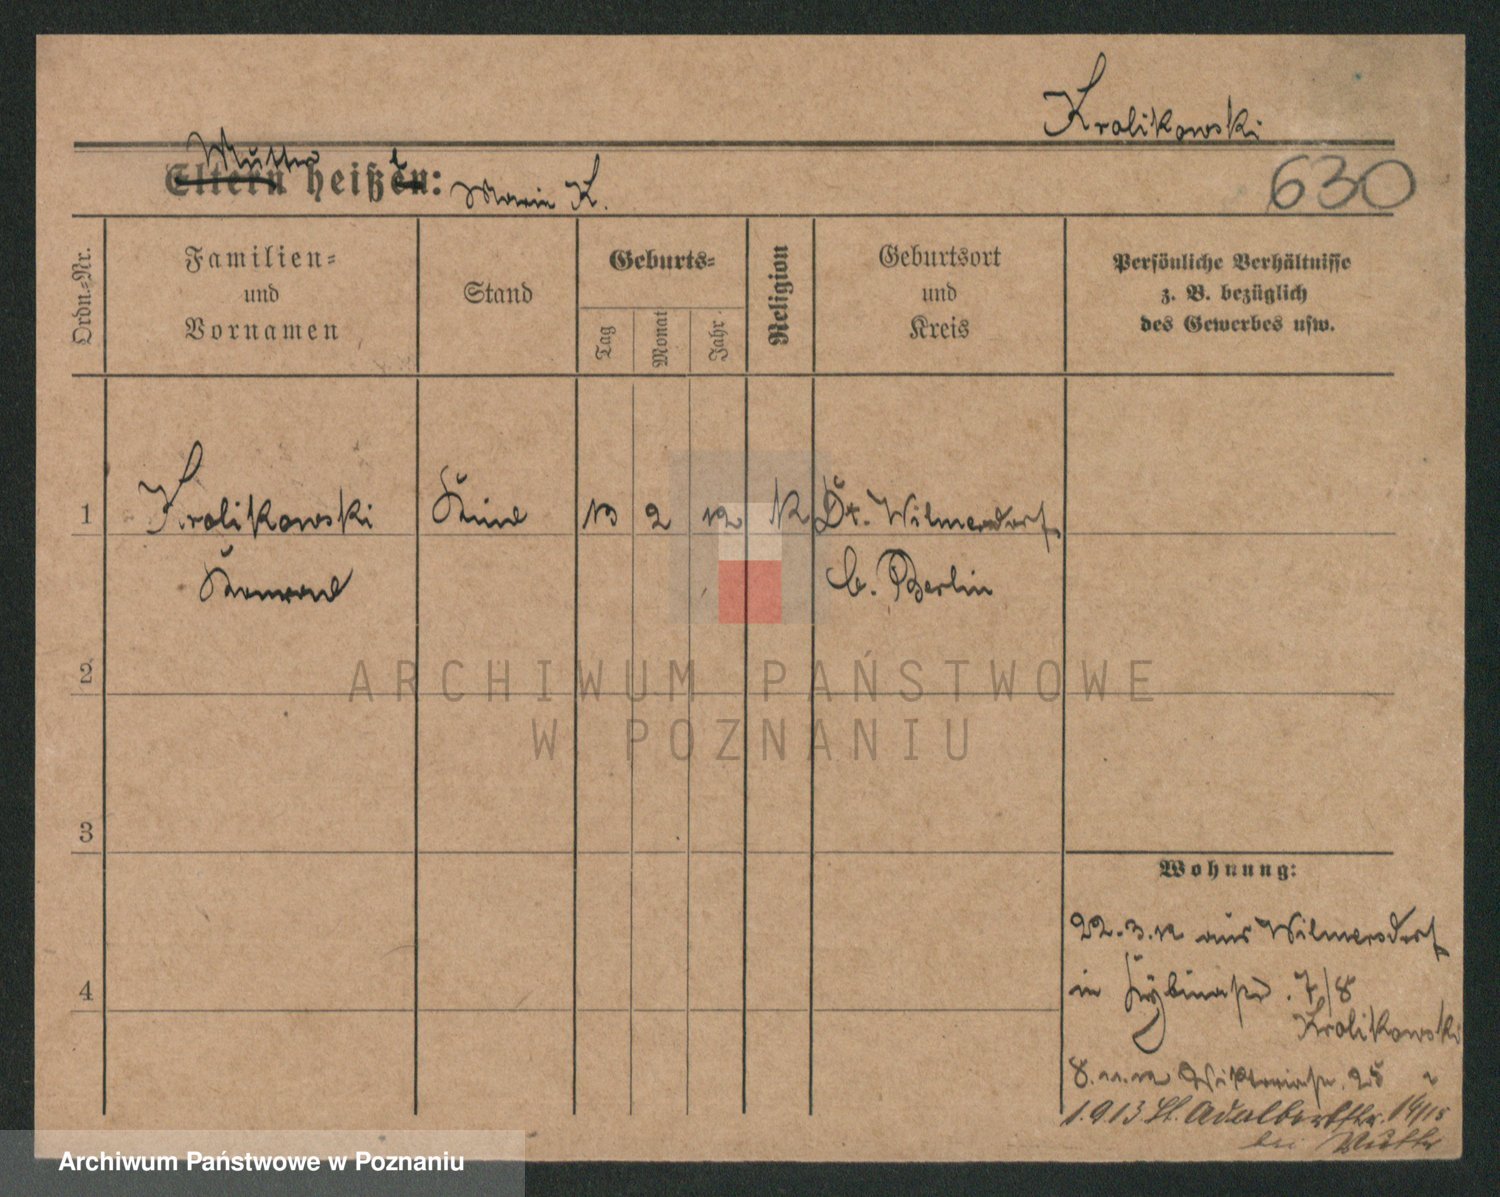 Krolikowski
Mutter
Eltern heißen: Maria K.
630
Ordn.-Nr.
Familien-
und
Vornamen
Stand
Geburts-
Tag
Monat
Jahr.
Religion
Geburtsort
und
Kreis
Persönliche Verhältnisse
z. B. bezüglich
des Gewerbes usw.
1
Krolikowski
Konrad
Kind
13 2 12 K
Dt. Wilmersdorf
b. Berlin
2
ARCHIWUM PAŃSTWOWE
W POZNANIU
3
4
Wohnung:
22.3.12 aus Wilmersdorf
in 7/8
Krolikowski
8.11.12 25
1.9.13 St. Adalbertstr. 14/15
bei Mutter
Archiwum Państwowe w Poznaniu